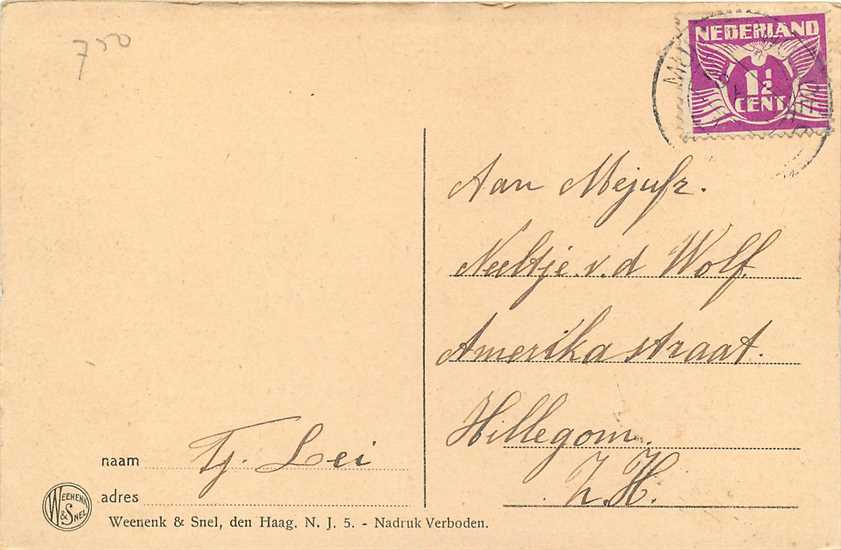 750
NEDERLAND
1½
CENT
Aan Mejufr.
Neeltje v.d Wolf.
Amerika straat.
Hillegom.
Z.H.
naam Tj. Lei
adres
WEENENK
& SNEL
Weenenk & Snel, den Haag. N. J. 5. - Nadruk Verboden.